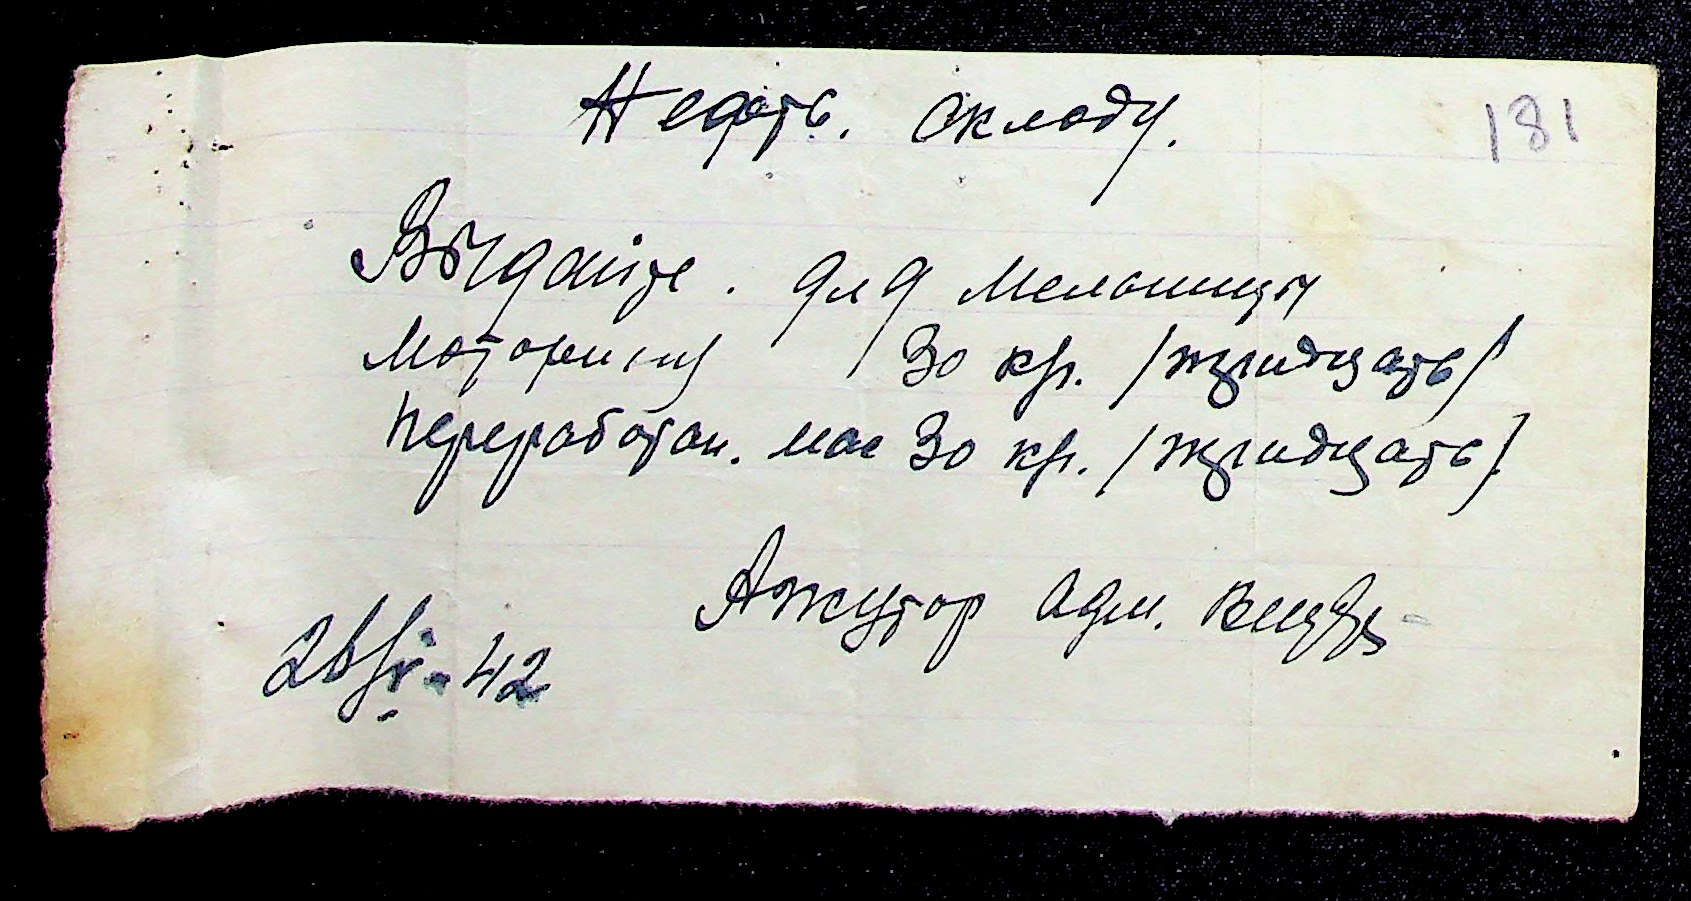 Нефть. складу.
181
Выдайте. для мельницы
Моторину 30 кг. /тридцать/
переработан. мас 30 кг. /тридцать/.
Ажутор Адм.
26/V-42